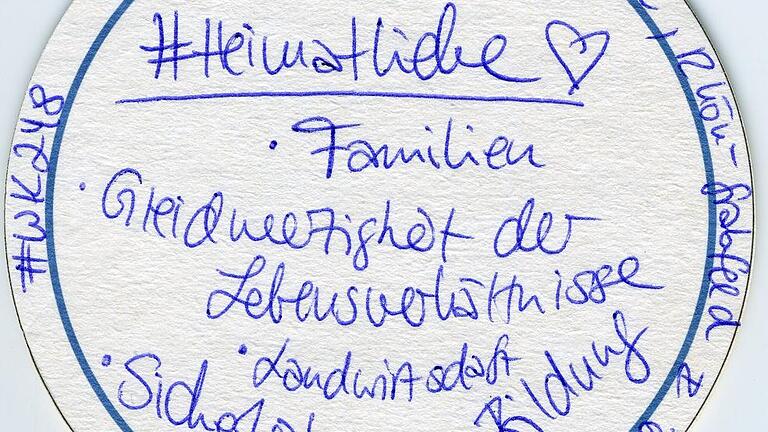 #Heimatliebe ♡
• Familien
• Gleichwertigkeit der
Lebensverhältnisse
• Landwirtschaft
• Sicherheit
Bildung
#WK248
Rhön-Grabfeld